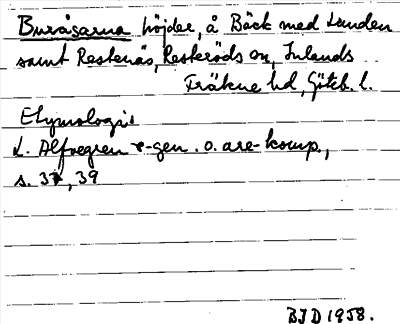 Buråsarna höjder, å Bäck med Lunden
samt Restenäs, Resteröds sn, Inlands
Fräkne hd, Göteb. l.
Etymologi:
L. Alfvegren r-gen. o. are-komp.,
s. 37, 39
BJD 1958.